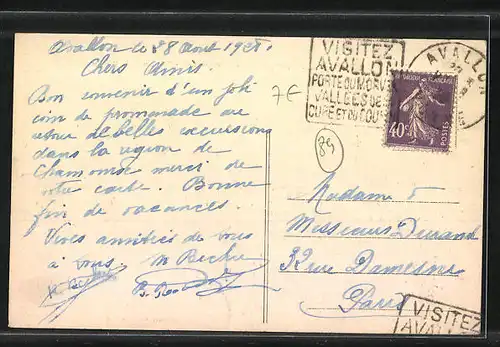 Avallon le 28 Aout 1928
Chers Amis.
Bon souvenir d'un joli
coin de promenade au
retour de belles excursions
dans la région de
Chamonix merci de
votre carte. Bonne
fin de vacances.
Vives amitiés de tous
à tous. M
7€
VISITEZ
AVALLON
PORTE DU MORVAN
VALLÉES DE
CURE ET DU COUSIN
AVALLON
RÉPUBLIQUE FRANÇAISE
40c
POSTES
89
Madame &
Messieurs Durand
32 rue Damesme
Paris
VISITEZ
AVALL